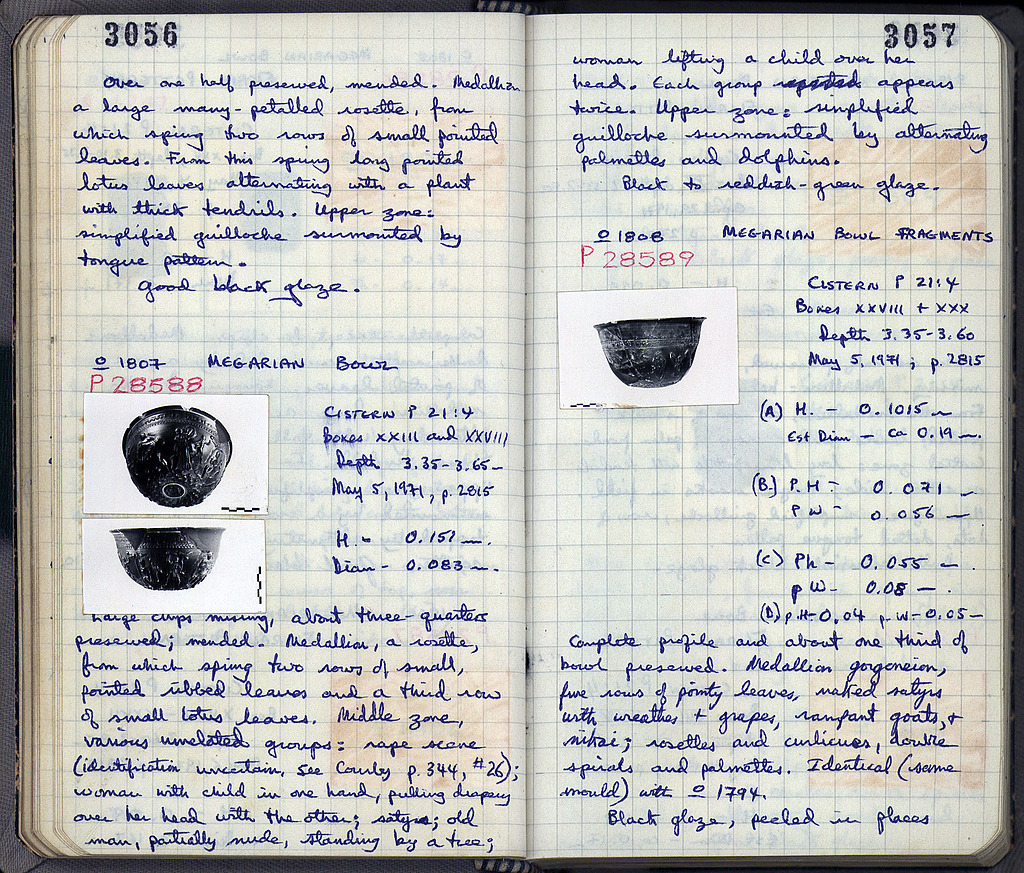 3056
Over one half preserved, mended. Medallion
a large many-petalled rosette, from
which spring two rows of small pointed
leaves. From this spring long pointed
lotus leaves alternating with a plant
with thick tendrils. Upper zone:
simplified guilloche surmounted by
tongue pattern.
Good black glaze.
O 1807 MEGARIAN BOWL
P 28588
CISTERN P 21:4
Boxes XXIII and XXVIII
Depth 3.35-3.65
May 5, 1971, p. 2815
H. - 0.151 m.
Diam - 0.083 m.
Large chips missing, about three-quarters
preserved; mended. Medallion, a rosette,
from which spring two rows of small,
pointed ribbed leaves and a third row
of small lotus leaves. Middle zone,
various unrelated groups: rape scene
(identification uncertain, see Courby p. 344, #26);
woman with child in one hand, pulling drapery
over her head with the other; satyrs; old
man, partially nude, standing by a tree;
3057
woman lifting a child over her
head. Each group appears
twice. Upper zone: simplified
guilloche surmounted by alternating
palmettes and dolphins.
Black to reddish-green glaze.
O 1808 MEGARIAN BOWL FRAGMENTS
P 28589
CISTERN P 21:4
Boxes XXVIII + XXX
Depth 3.35-3.60
May 5, 1971; p. 2815
(A) H. - 0.1015 m
Est Diam - ca 0.19 m.
(B.) P.H - 0.071 m
P W - 0.056 m
(C) Ph - 0.055 m.
p W - 0.08 m.
(D) p.H-0.04 p.W-0.05 m
Complete profile and about one third of
bowl preserved. Medallion gorgoneion,
five rows of pointy leaves, naked satyrs
with wreathes + grapes, rampant goats, +
nikai; rosettes and curlicues, double
spirals and palmettes. Identical (same
mould) with O 1794.
Black glaze, peeled in places